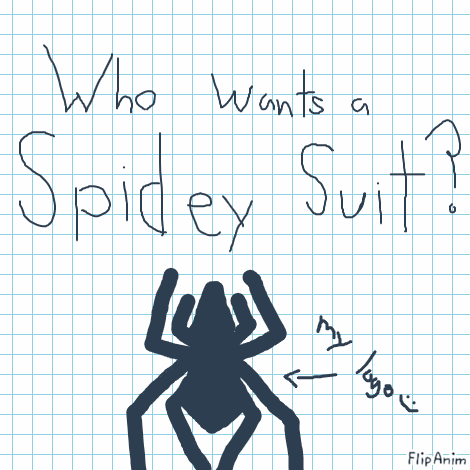 Who wants a
Spidey Suit?
my
logo :)
FlipAnim